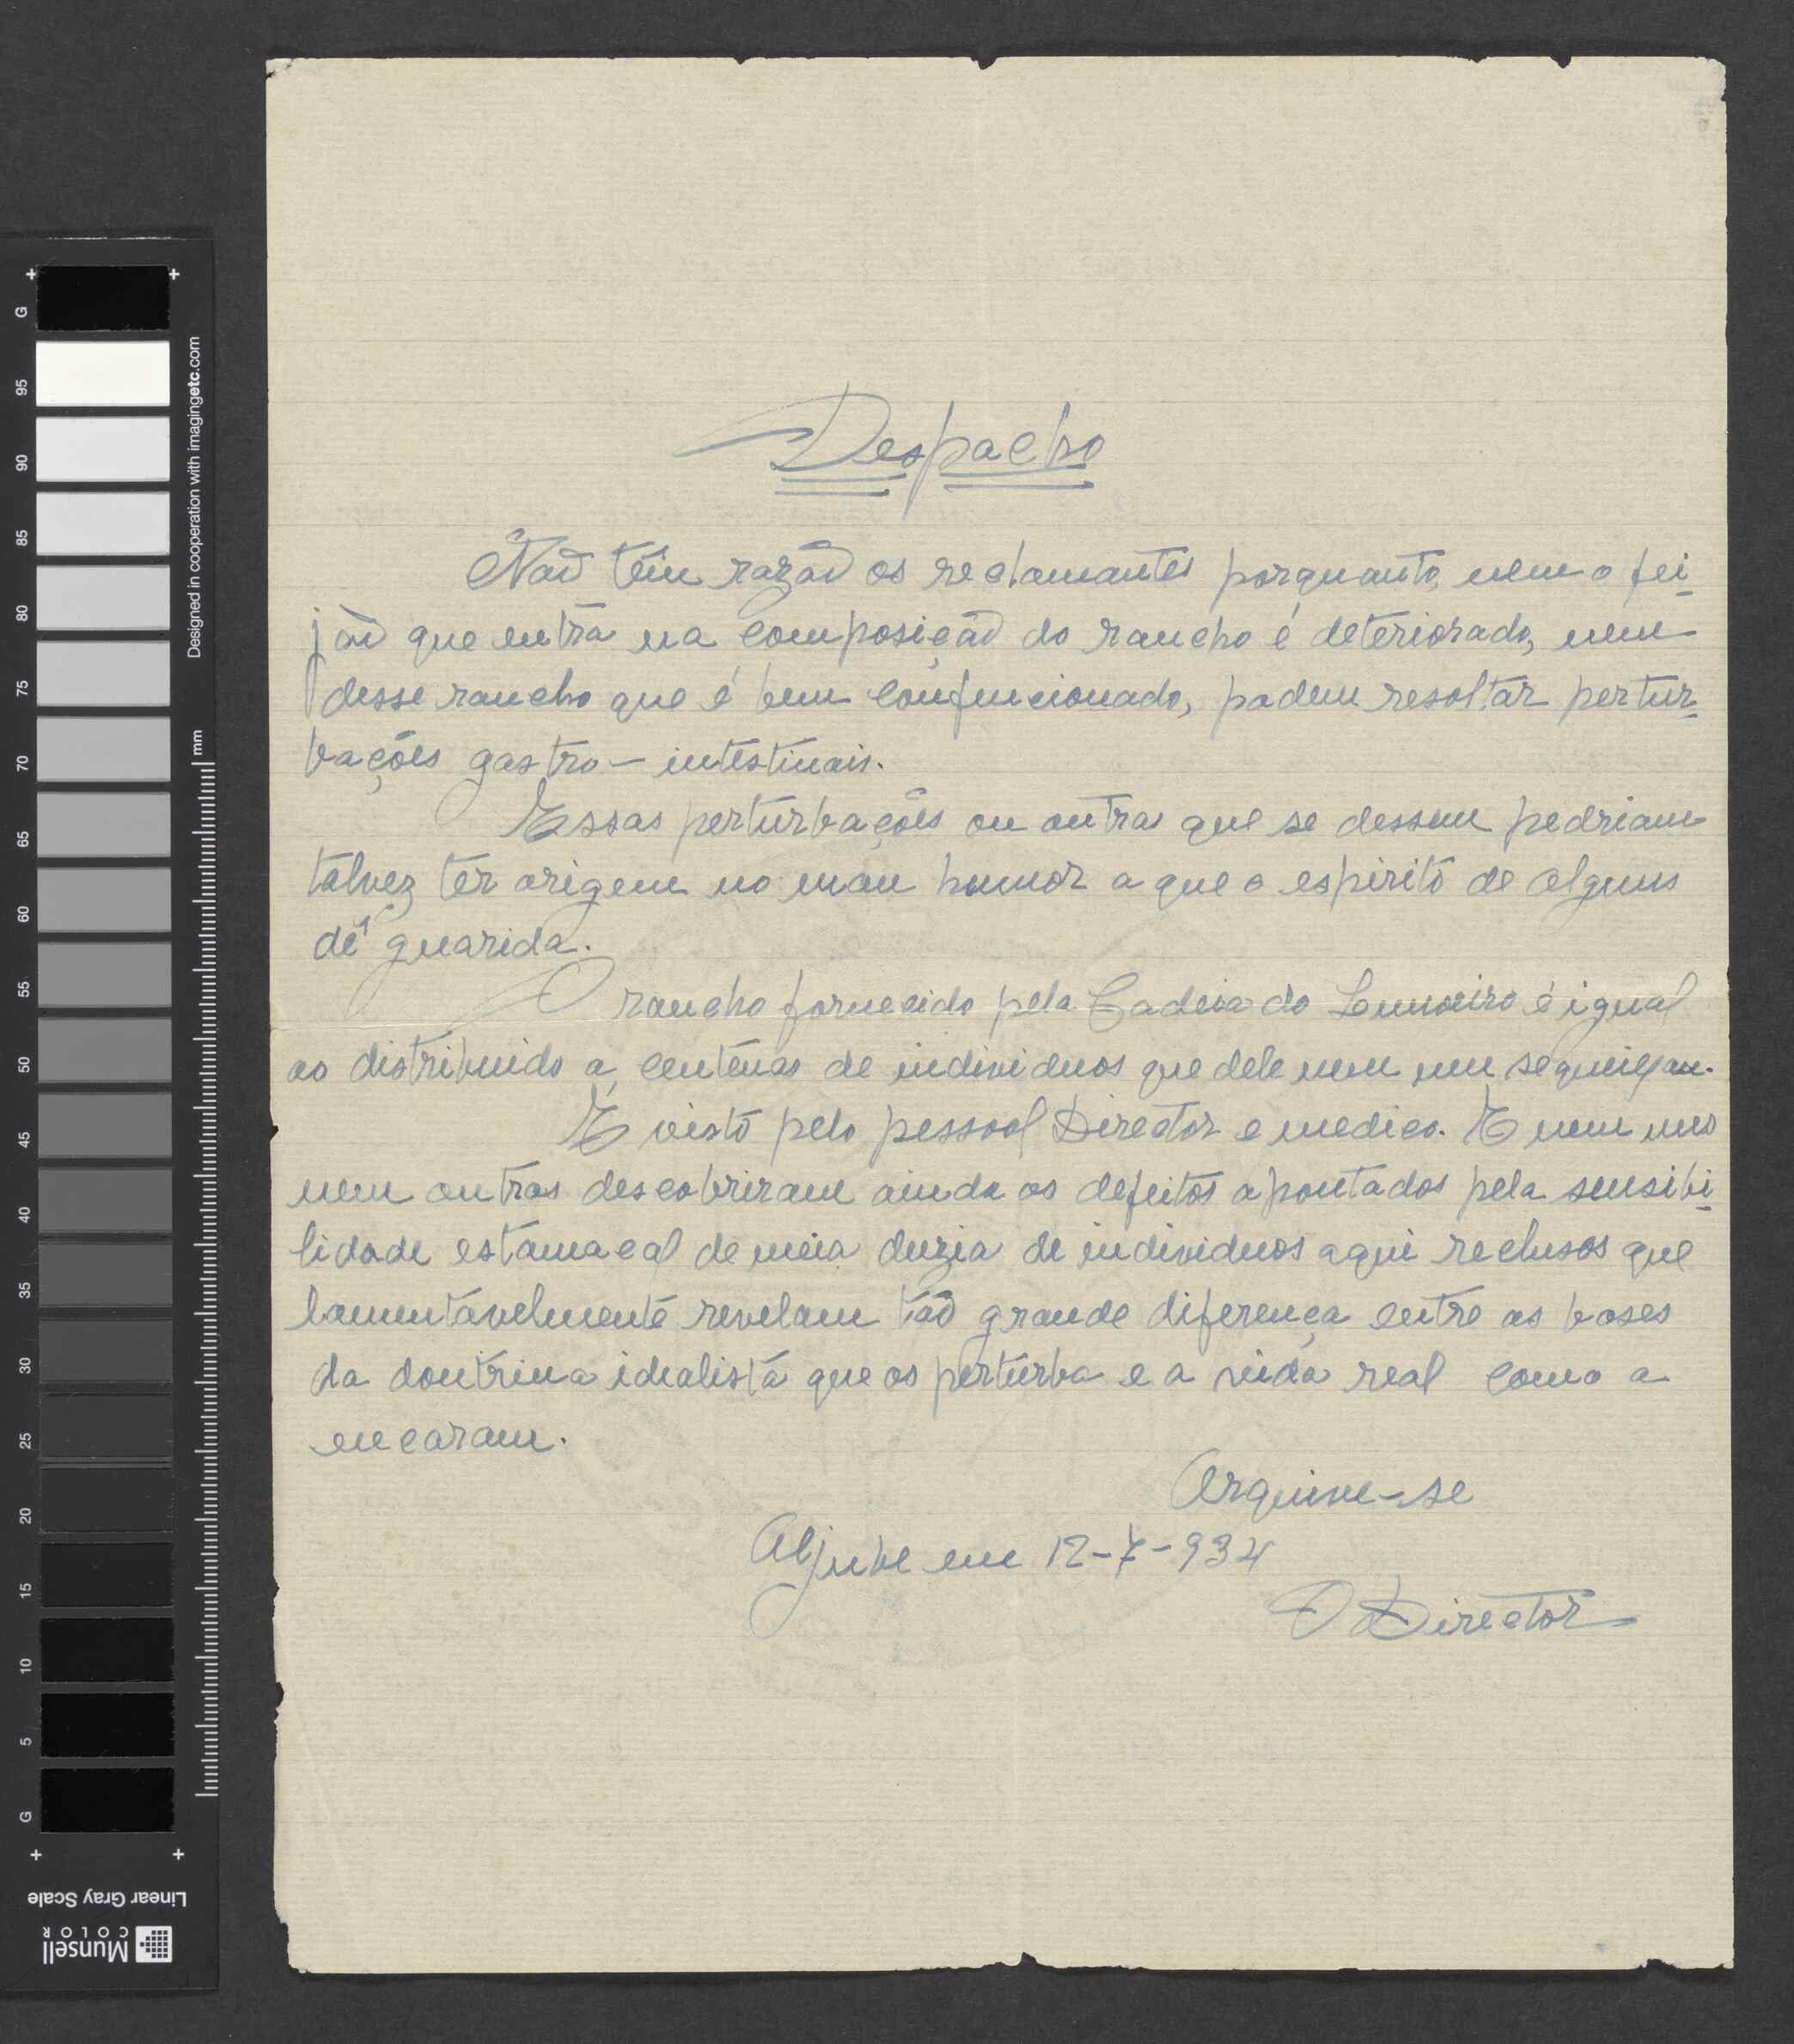 Despacho
Não têm razão os reclamantes porquanto, nem o fei-
jão que entra na composição do rancho é deteriorado, nem
desse rancho que é bem confencionado, podem resoltar pertur-
bações gastro-intestinais.
Essas perturbações ou outras que se dessem podriam
talvez ter origem no mau humor a que o espirito de alguns
dê guarida.
O rancho fornecido pela Cadeia do Limoeiro é igual
ao distribuido a centenas de individuos que dele nem um se queixam.
E visto pelo pessoal Director e medico. E nem uns
nem outros descobriram ainda os defeitos apontados pela sensibi-
lidade estamacal de meia duzia de individuos aqui reclusos que
lamentavelmente revelam tão grande diferença entre as bases
da doutrina idealista que os perturba e a vida real como a
encaram.
Arquive-se
Aljube em 12-7-934
O Director
Designed in cooperation with imagingetc.com
mm
G
95
90
85
80
75
70
65
60
55
50
45
40
35
30
25
20
15
10
5
G
Linear Gray Scale
Munsell
COLOR